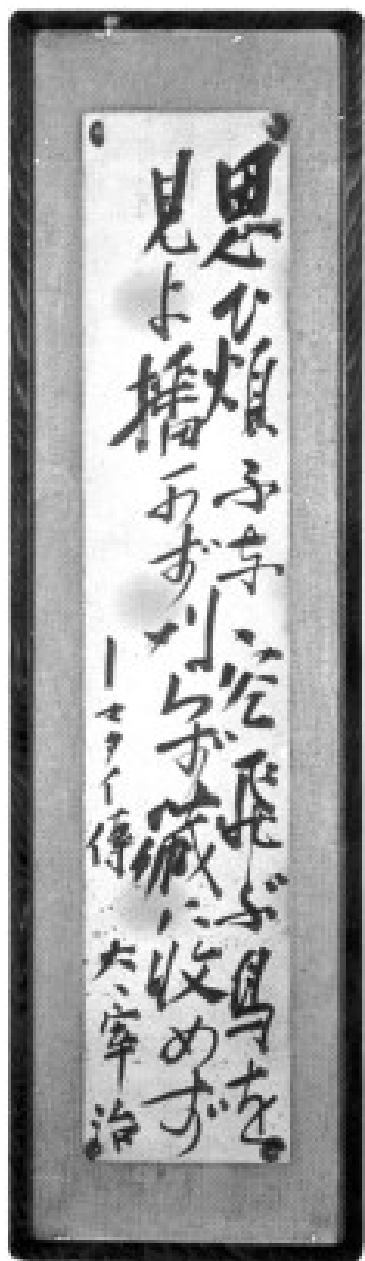 思ひ煩ふな空飛ぶ鳥を
見よ播かず刈らず藏に收めず
―マタイ傳 太宰治